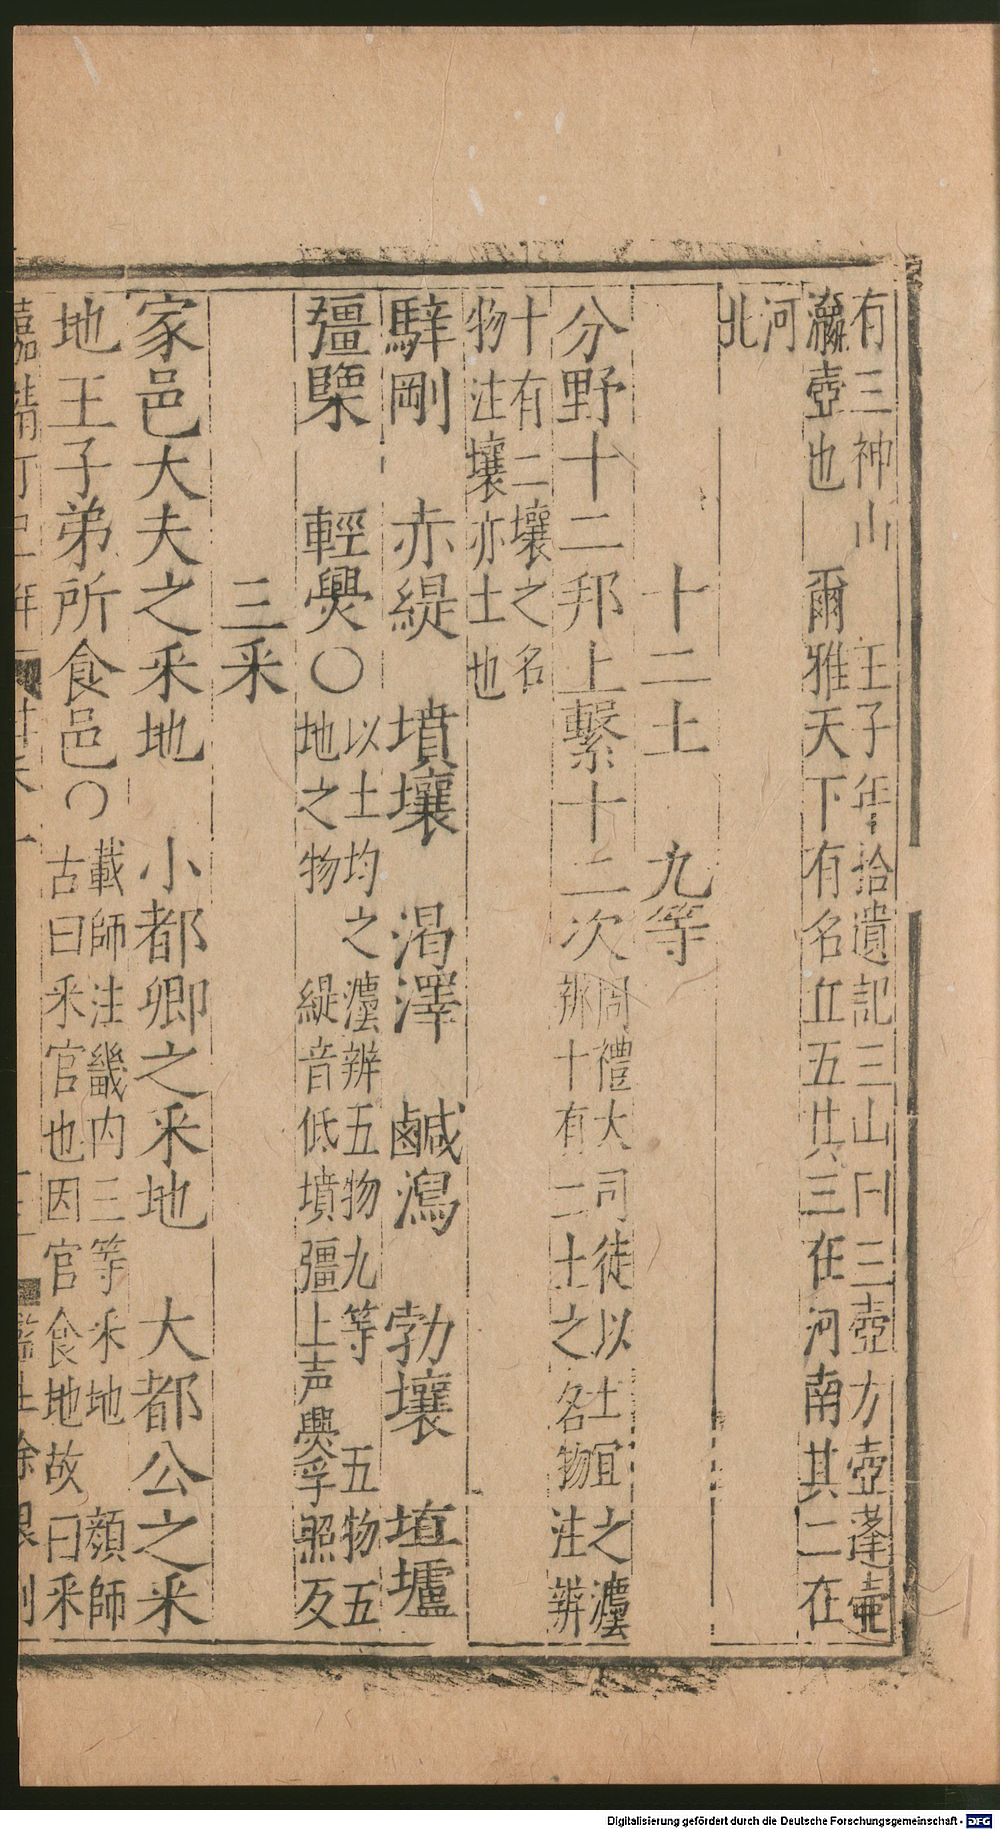 有三神山　王子年拾遺記三山曰三壺方壺蓬壺
瀛壺也　爾雅天下有名丘五其三在河南其二在
河
北
十二土　九等
分野十二邦上繫十二次
周禮大司徒以土宜之灋
辨十有二土之名物注辨
十有二壤之名
物注壤亦土也
騂剛　赤緹　墳壤　渴澤　鹹潟　勃壤　埴壚
彊㯺　輕㷼〇
以土均之灋辨五物九等　五物五
地之物　緹音低墳彊上声㷼孚照反
三采
家邑大夫之采地　小都卿之采地　大都公之采
地王子弟所食邑〇
載師注畿内三等采地　顔師
古曰采官也因官食地故曰采
嘉靖丁巳年
Digitalisierung gefördert durch die Deutsche Forschungsgemeinschaft - DFG